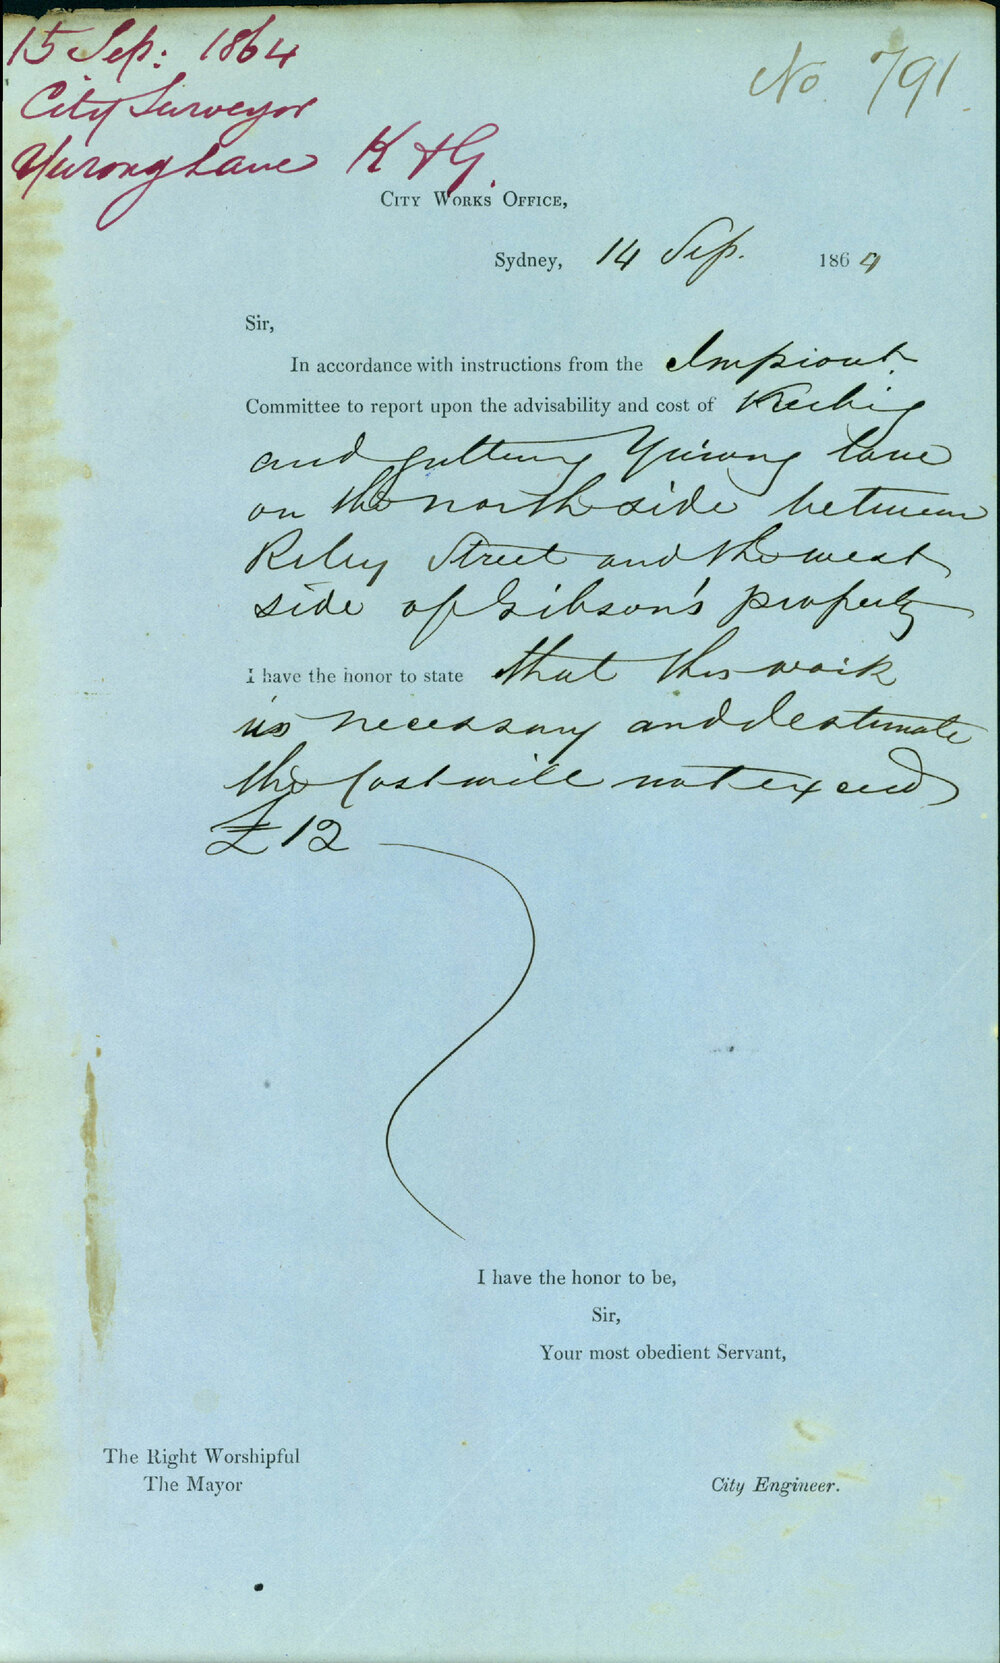 15 Sep: 1864
City Surveyor
Yurong Lane K & G.
No. 791.
City Works Office,
Sydney, 14 Sep. 1864
Sir,
In accordance with instructions from the Improvt.
Committee to report upon the advisability and cost of Kerbing
and guttering Yurong lane
on the north side between
Riley Street and the west
side of Gibson's property
I have the honor to state that this work
is necessary and I estimate
the cost will not exceed
£12
I have the honor to be,
Sir,
Your most obedient Servant,
The Right Worshipful
The Mayor
City Engineer.